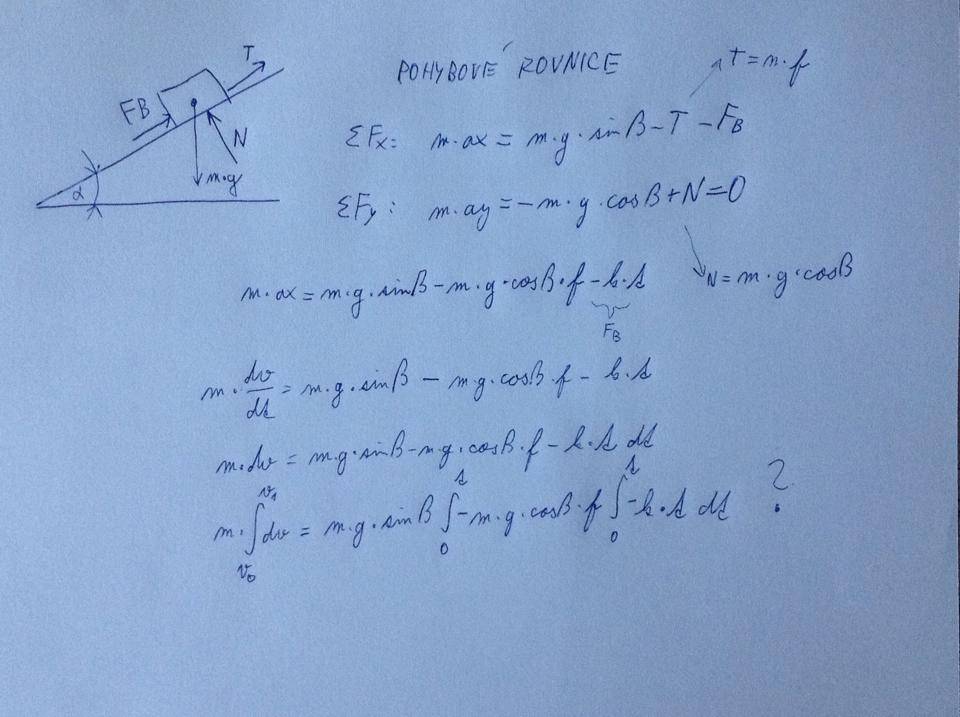 POHYBOVÉ ROVNICE
T = n·f
T
FB
N
m·g
α
ΣFx: m·ax = m·g·sinβ - T - FB
ΣFy: m·ay = -m·g·cosβ + N = 0
N = m·g·cosβ
m·ax = m·g·sinβ - m·g·cosβ·f - k·t
FB
m·dv/dt = m·g·sinβ - m·g·cosβ·f - k·t
m·dv = m·g·sinβ - m·g·cosβ·f - k·t dt
m·∫v₀v₁ dv = m·g·sinβ ∫0t -m·g·cosβ·f ∫0t -k·t dt ?